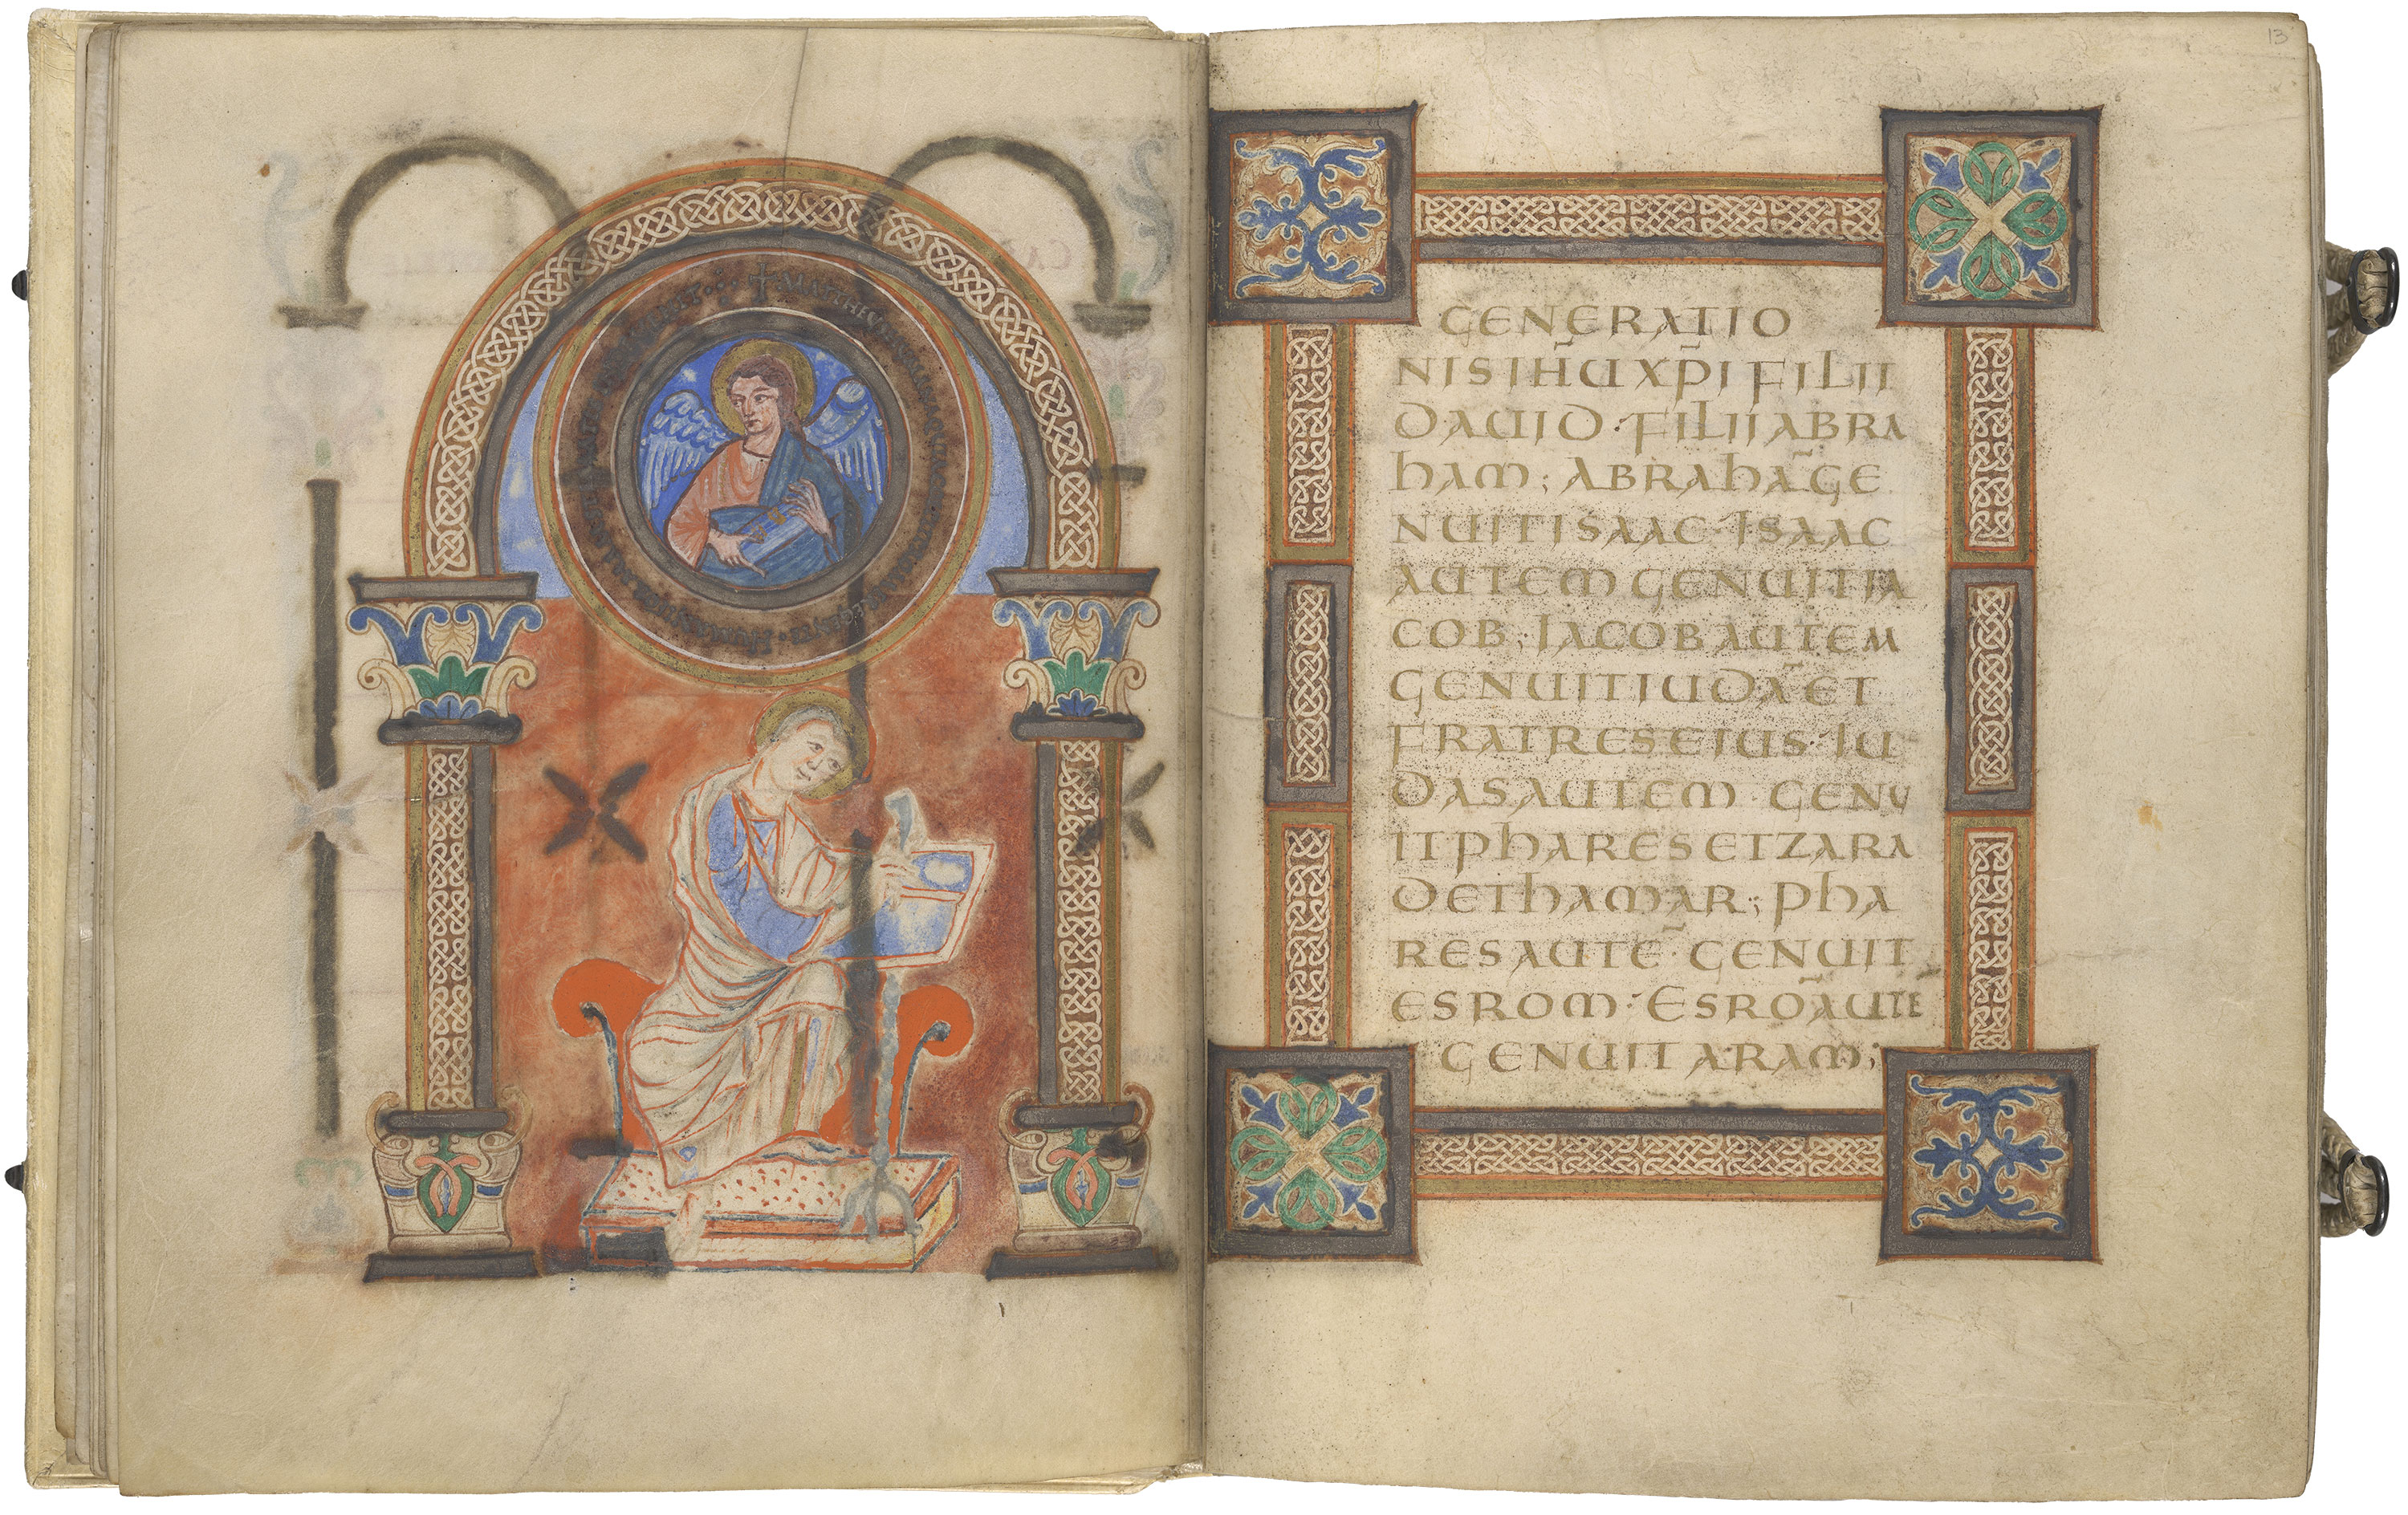 + MATTHEUS
13
GENERATIO
NIS IHU XPI FILII
DAUID · FILII ABRA
hAM ; ABRAhĀ GE
NUIT ISAAC · ISAAC
AUTEM GENUIT IA
COB ; IACOB AUTEM
GENUIT IUDĀ ET
FRATRES EIUS · IU
DAS AUTEM · GENU
IT PhARES ET ZARA
DE ThAMAR ; PhA
RES AUTĒ · GENUIT
ESROM · ESRŌ AUTĒ
GENUIT ARAM ;